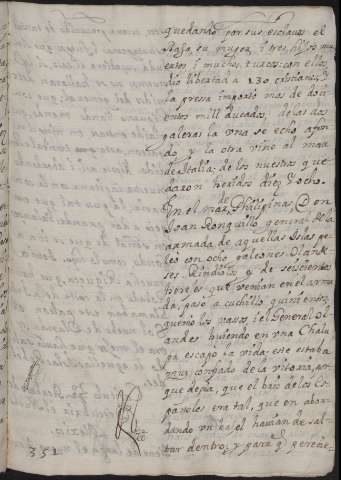 quedando por sus esclauos el
Baxa, su muger, i tres hijos mu
ertos, i muchos turcos: con ellos
dio libertad a 130 cristianos, i
la pressa importó mas de doci
entos mill ducados, de las dos
galeras la una se echo afon
do, y la otra vino al mar
de Italia; de los nuestros que
daron heridos diez y ocho.
En el mar de Philipinas, Don
Joan Ronquillo general de la
armada de aquellas Islas pe
leó con ocho galeones Olande
ses. Rindiolos, y de seiscientos
hereges que venian en el arma
da, pasó a cuchillo quinientos
que no los pasos, i el General Ol
andes huiendo en una Chalu
pa escapo la vida: este estaba
muy confiado de la vitoria, por
que decia, que el brio de los Es
pañoles era tal, que en abor
dando un baxel hauian de sal
tar dentro; y para q̃ perecie
352